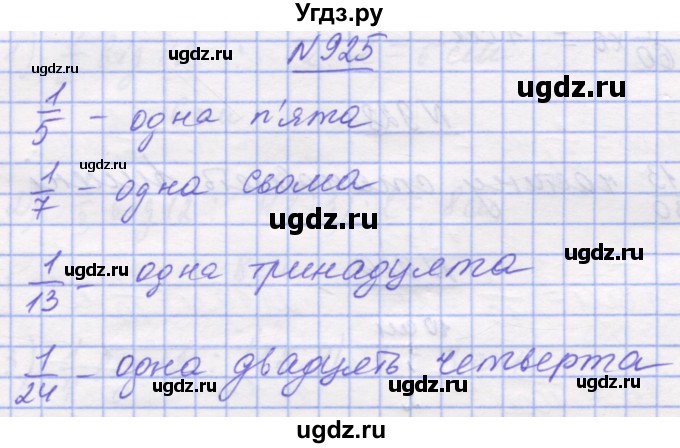 Угдз.ру
№925
1/5 - одна п'ята
1/7 - одна сьома
1/13 - одна тринадцята
1/24 - одна двадцять четверта
ugdz.ru
ugdz.ru
ugdz.ru
ugdz.ru
ugdz.ru
ugdz.ru
ugdz.ru
ugdz.ru
ugdz.ru
ugdz.ru
ugdz.ru